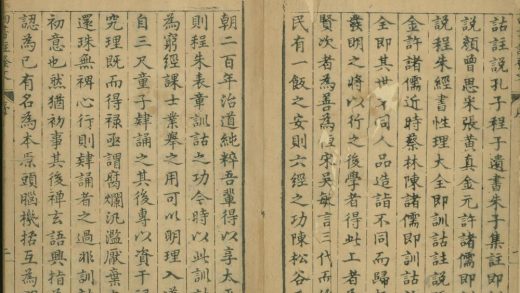 詁註說孔子程子遺書朱子集註即
說顏曾思米張黃真金元許諸儒即
說程朱經書性理大全即訓詁註說
金許諸儒近時蔡林陳諸儒即訓詁
全即其世不同人品造詣不同而歸
發明之將以行之後學者得此工者
賢次者為善為恆宋吳敏言三代而
民有一飯之安則六經之功陳松谷
朝二百年治道純粹吾輩得以享太
則程朱表章訓詁之功今時以此訓
為窮經課士業舉之用可以明理入
自三尺童子肄誦之其後專以資干
究理既而得祿亟謂腐爛汎濫厭棄
還珠無裨心行則肄誦者之過非訓
初意也然猶初事其後禪玄語興指
認為已有名為本原頭腦機括互為